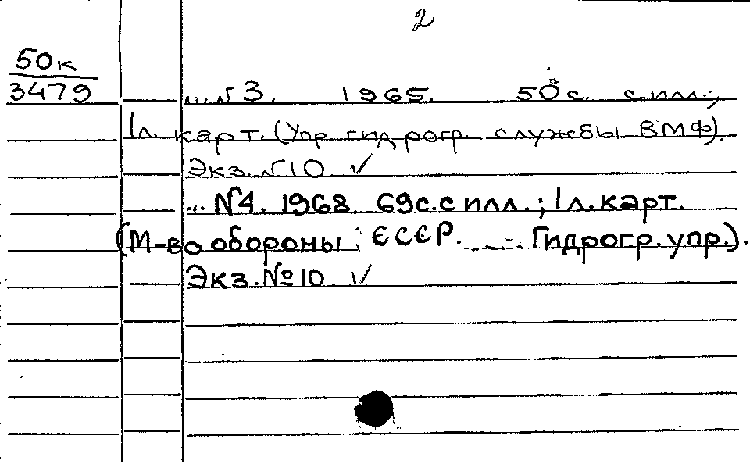 2
50к
3479
... №3. 1965. 50с. с илл.;
1л. карт. (Упр. гидрогр. службы ВМФ).
Экз. №10 ✓
... №4. 1968 69с. с илл.; 1л. карт.
(М-во обороны СССР. Гидрогр. упр.).
Экз. №10 ✓